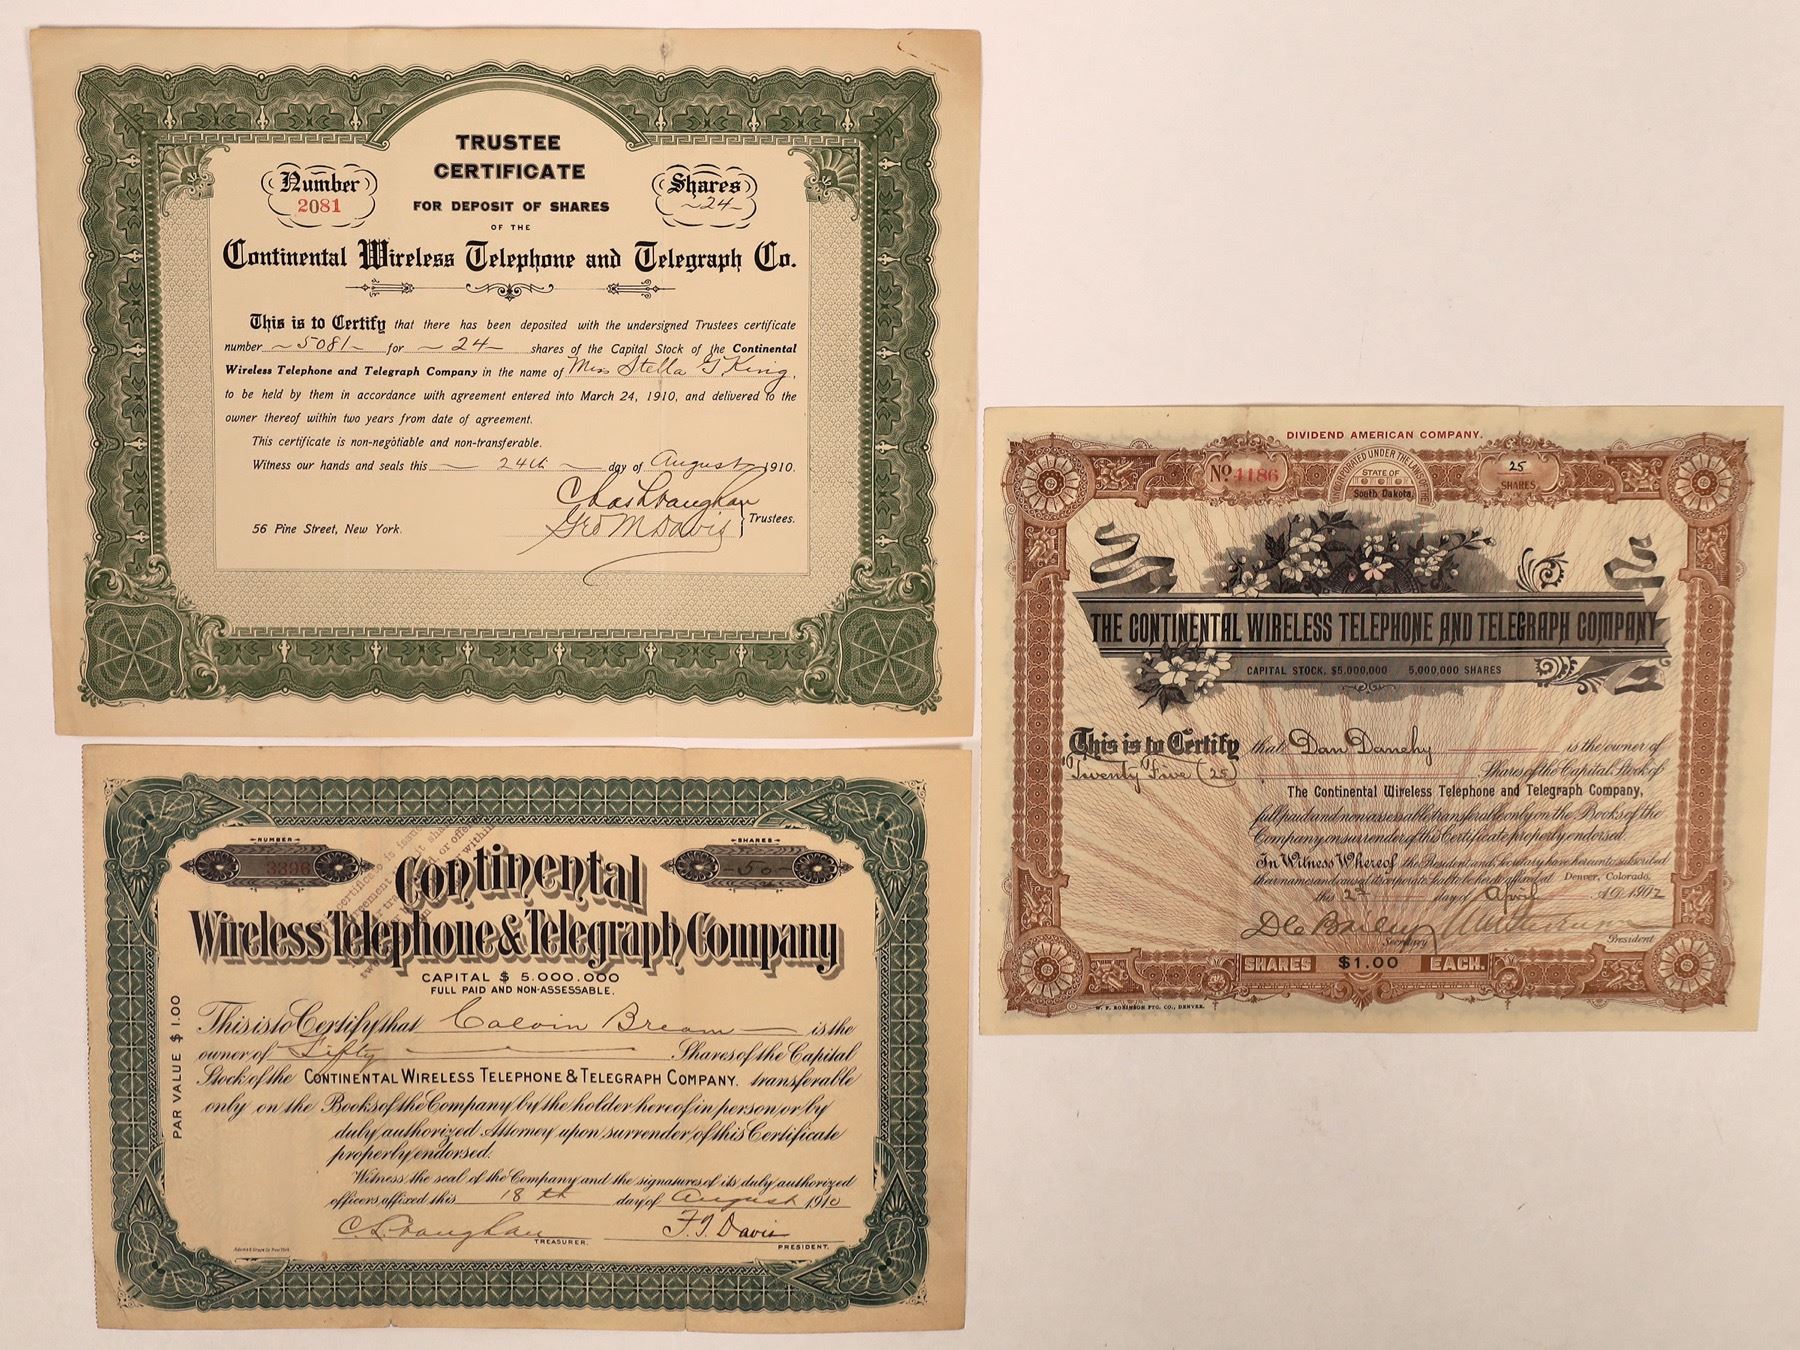 TRUSTEE
CERTIFICATE
FOR DEPOSIT OF SHARES
OF THE
Number
2081
Shares
24
Continental Wireless Telephone and Telegraph Co.
This is to Certify that there has been deposited with the undersigned Trustees certificate
number 5081 for 24 shares of the Capital Stock of the Continental
Wireless Telephone and Telegraph Company in the name of Miss Stella G King,
to be held by them in accordance with agreement entered into March 24, 1910, and delivered to the
owner thereof within two years from date of agreement.
This certificate is non-negotiable and non-transferable.
Witness our hands and seals this 24th day of August 1910.
Chas L Vaughan
Geo M Davis
Trustees.
56 Pine Street, New York.
NUMBER
3396
SHARES
50
Continental
Wireless Telephone & Telegraph Company
CAPITAL $ 5.000.000
FULL PAID AND NON-ASSESSABLE.
PAR VALUE $1.00
This is to Certify that Calvin Bream is the
owner of Fifty Shares of the Capital
Stock of the CONTINENTAL WIRELESS TELEPHONE & TELEGRAPH COMPANY. transferable
only on the Books of the Company by the holder hereof in person or by
duly authorized Attorney upon surrender of this Certificate
properly endorsed.
Witness the seal of the Company and the signatures of its duly authorized
officers affixed this 18th day of August 1910
C L Vaughan
TREASURER.
F. J. Davis
PRESIDENT.
DIVIDEND AMERICAN COMPANY.
No. 4186
INCORPORATED UNDER THE LAWS OF THE
STATE OF
South Dakota
25
SHARES
THE CONTINENTAL WIRELESS TELEPHONE AND TELEGRAPH COMPANY
CAPITAL STOCK, $5,000,000 5,000,000 SHARES
This is to Certify that Dan Danehy is the owner of
Twenty Five (25) Shares of the Capital Stock of
The Continental Wireless Telephone and Telegraph Company,
full paid and non assessable transferable only on the Books of the
Company on surrender of this Certificate properly endorsed.
In Witness Whereof the President and Secretary have hereunto subscribed
their names and caused its corporate Seal to be hereto affixed at Denver, Colorado,
this day of April A.D. 1902
Secretary
President
SHARES $1.00 EACH.
W. F. ROBINSON PTG. CO., DENVER.